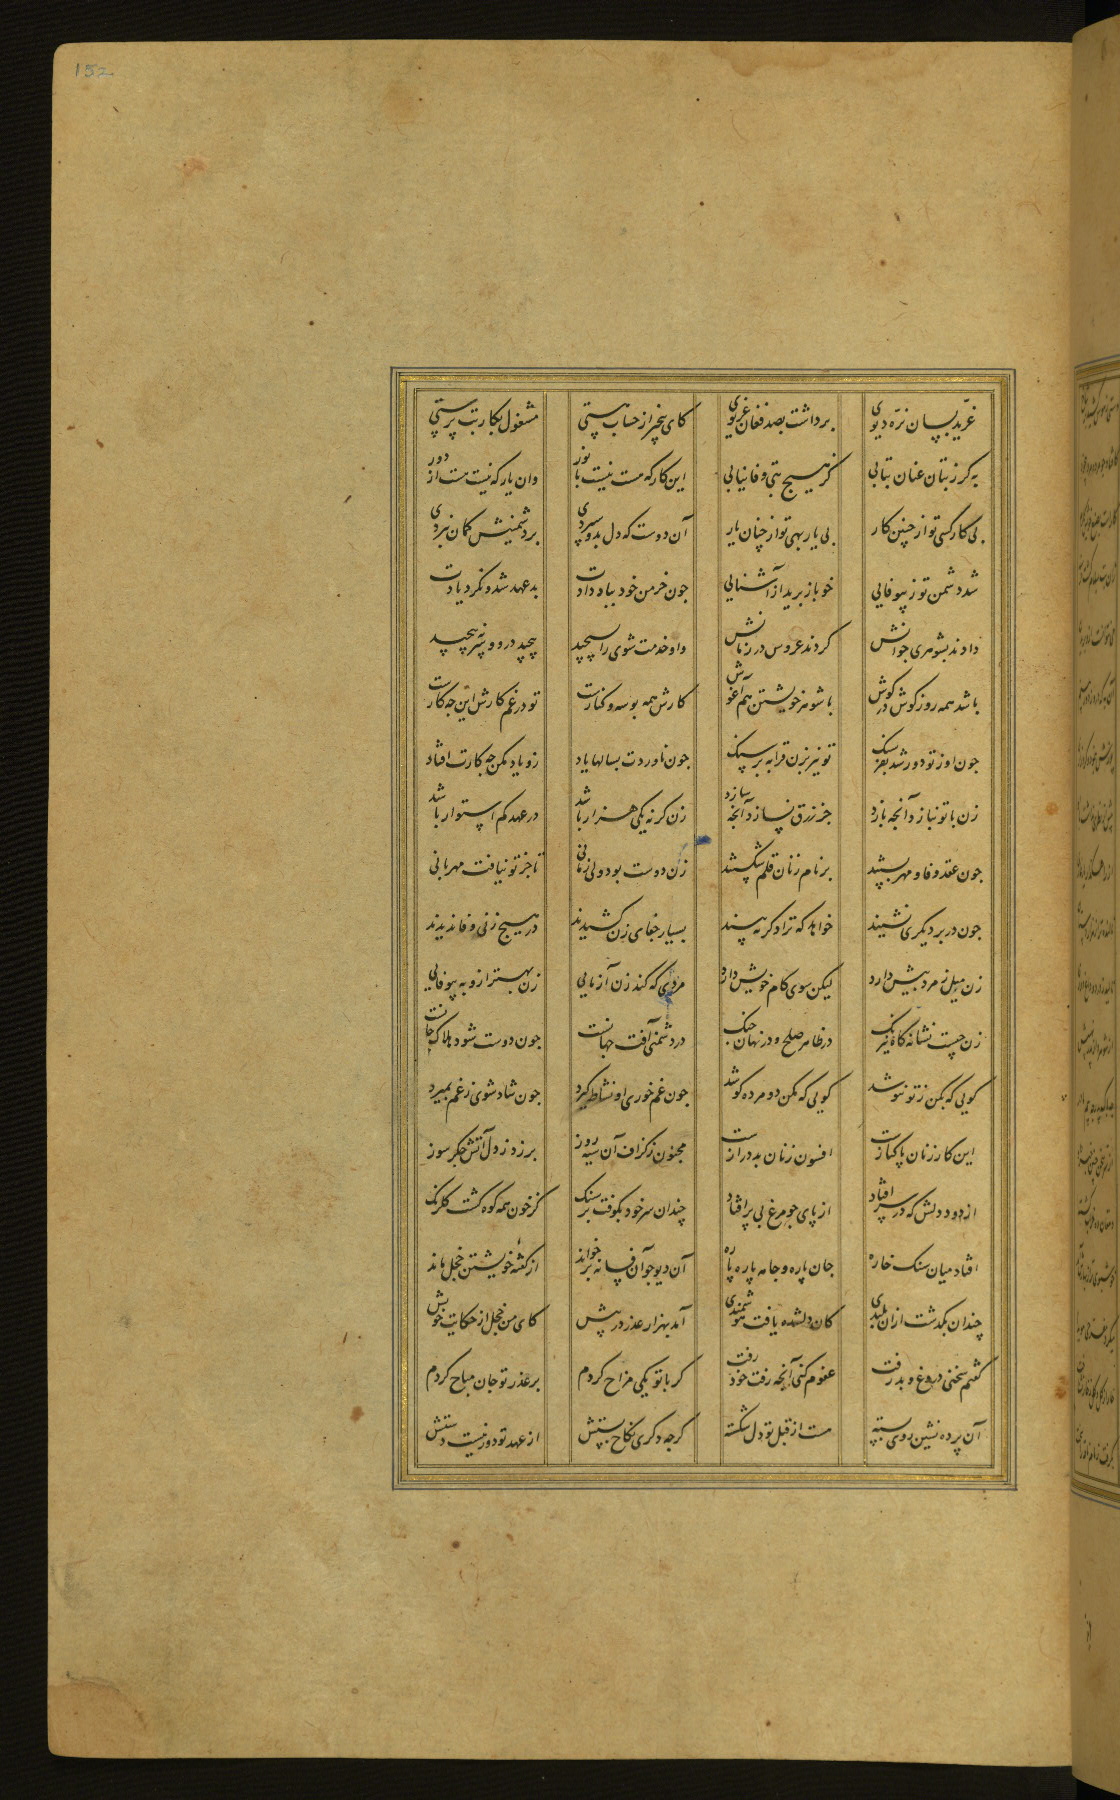 152
غرّید بسان نرّه دیوی برداشت بصد فغان غریوی کای بیخبر از حساب هستی مشغول بکار بت پرستی
به کر ز بتان عنان بتابی کز هیچ بتی وفا نیابی این کار که هست نیست با نور وان یار که نیست هست از دور
بی کار کسی تو از چنین کار بی یار بهی تو از چنان یار آن دوست که دل بدو سپردی بر دشمنیش کمان نبردی
شد دشمن تو ز بیوفایی خو باز برید از آشنایی جون خرمن خود بباد دادت بد عهد شد و نکرد یادت
دادند بشوهری جوانش کردند عروس در زمانش و او خدمت شوی را بسیچید پیچید درو و سر نپیچید
باشد همه روز کوش در کوش با شوهر خویشتن هم آغوش کارش همه بوسه و کنارست تو در غم کارش این جه کارست
جون او ز تو دور شد بفرسنک تو نیز بزن قرابه بر سنک جون ناوردت بسالها یاد زو یاد مکن جه کارت افتاد
زن با تو نسازد آنجه بازد جز زرق نسازد آنجه سازد زن کر نه یکی هزار باشد در عهد کم استوار باشد
جون عقد وفا و مهر بستند بر نام زنان قلم شکستند زن دوست بود ولی زمانی تا جز تو نیافت مهربانی
جون در بر دیکری نشیند خواهد که ترا دکر نه بیند بسیار جفای زن کشیدند در هیچ زنی وفا ندیدند
زن میل ز مرد بیش دارد لیکن سوی کام خویش دارد مردی که کند زن آزمایی زن بهتر ازو به بیوفایی
زن چیست نشانه کاه نیرنک در ظاهر صلح و در نهان جنک در دشمنی آفت جهانست جون دوست شود هلاک جانست
کویی که بکن ز تو ننوشد کویی که مکن دو مرده کوشد جون غم خوری او نشاط کیرد جون شاد شوی ز غم بمیرد
این کار زنان پاکبازست افسون زنان بد درازست مجنون ز کزاف آن سیه روز بر زد ز دل آتش جکر سوز
از دود دلش که در سر افتاد از پای جو مرغ بی پر افتاد چندان سر خود بکوفت بر سنک کز خون همه کوه کشت کلرنک
افتاد میان سنک خاره جان پاره و جامه پاره پاره آن دیو جو آن فسانه بر خواند از کفته خویشتن خجل ماند
چندان بکدشت از آن بلندی کان دلشده یافت هوشمندی آمد بهزار عذر در پیش کای من خجل از حکایت خویش
کفتم سخنی دروغ و بد رفت عفوم کنی آنجه رفت خود رفت کر با تو یکی مزاح کردم بر عذر تو جان مباح کردم
آن پرده نشین روی بسته هست از قبل تو دل شکسته کرجه دکری نکاح بستش از عهد تو دور نیست دستش